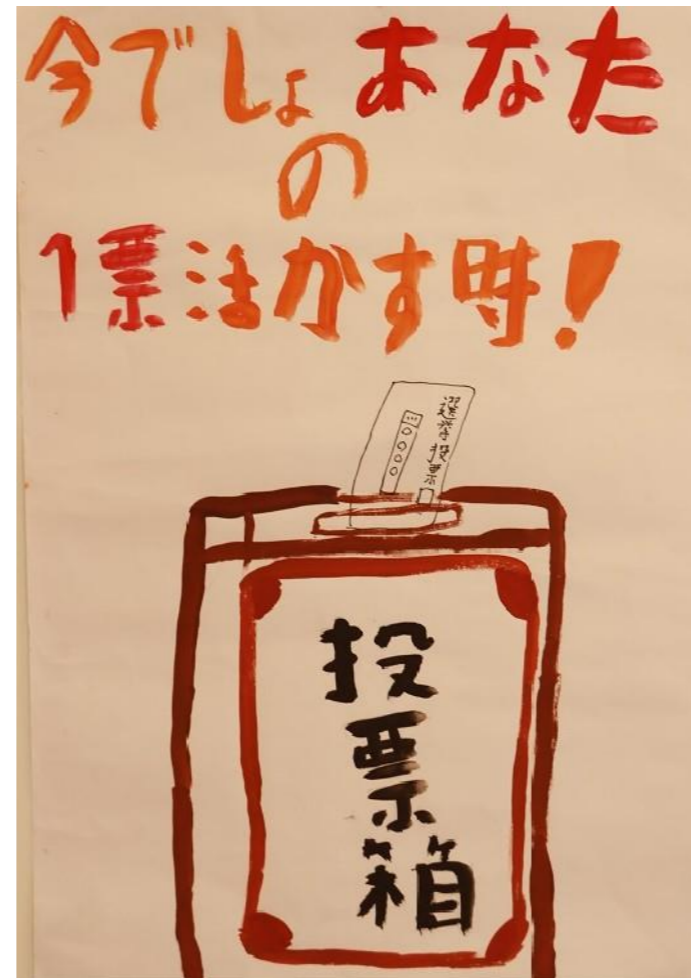 今でしょあなた
の
1票活かす時!
選挙投票
○○○○
投票箱